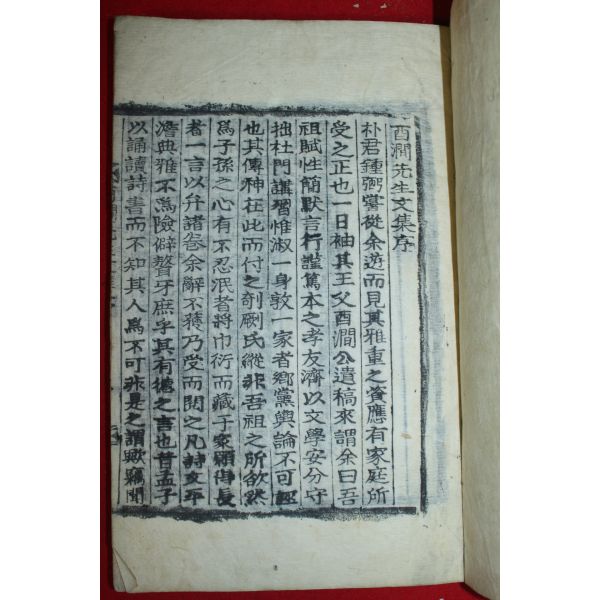 酉澗先生文集序
朴君鍾弼嘗從余遊而見其雅重之資應有家庭所
受之正也一日袖其王父酉澗公遺稿來謂余曰吾
祖賦性簡默言行謹篤本之孝友濟以文學安分守
拙杜門講習惟淑一身敦一家者鄉黨輿論不可誣
也其傳神在此而付之剞劂氏縱非吾祖之所欲然
爲子孫之心有不忍泯者將巾衍而藏于家願得長
者一言以弁諸卷余辭不獲乃受而閱之凡詩文平
澹典雅不爲險僻聱牙庶乎其有德之言也昔孟子
以誦讀詩書而不知其人爲不可非是之謂歟竊聞